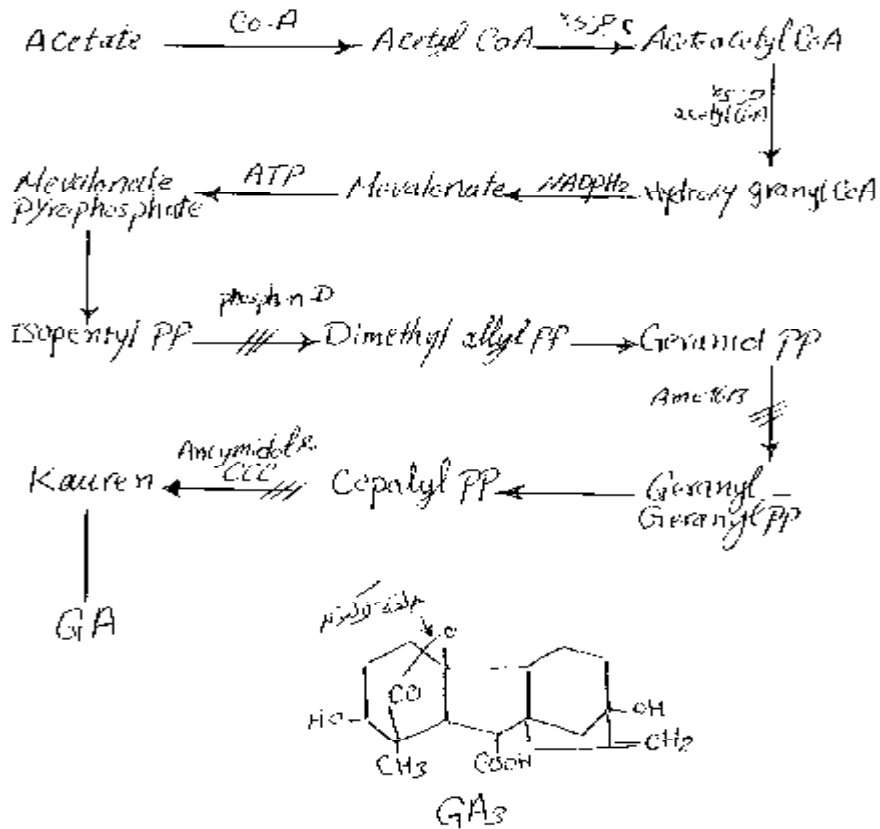 Acetate
Co-A
Acetyl CoA
Acetoacetyl CoA
acetyl CoA
Mevalonate
pyrophosphate
ATP
Mevalonate
NADPH2
Hydroxy granyl CoA
Isopentyl PP
phosphon D
Dimethyl allyl PP
Geraniol PP
Amo 1618
Kauren
Ancymidol
CCC
Copalyl PP
Geranyl –
Geranyl PP
GA
O
CO
HO
OH
CH3
COOH
CH2
GA3